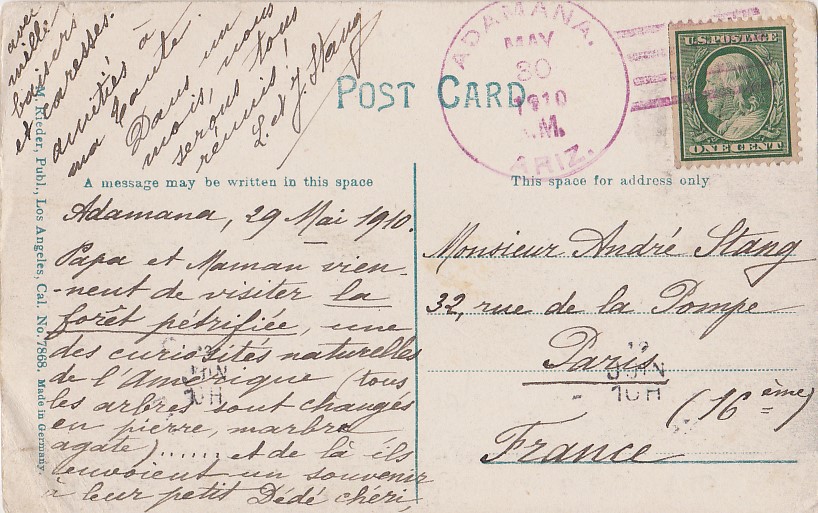 POST CARD
A message may be written in this space
This space for address only
M. Rieder, Publ., Los Angeles, Cal. No. 7868. Made in Germany.
ADAMANA.
MAY
30
1910
M.
ARIZ.
U.S. POSTAGE
ONE CENT
Adamana, 29 Mai 1910.
Papa et Maman vien-
-nent de visiter la
forêt pétrifiée, une
des curiosités naturelles
de l'Amérique (tous
les arbres sont changés
en pierre, marbre
agate)......et de là ils
envoient un souvenir
à leur petit Dédé chéri,
avec
mille
baisers
et caresses.
amitiés à
ma tante.
Dans un
mois, nous
serons tous
réunis!
L. et J. Stang
Monsieur André Stang
32, rue de la Pompe
Paris
(16ème)
France
12
JUIN
10H
JUIN
10H